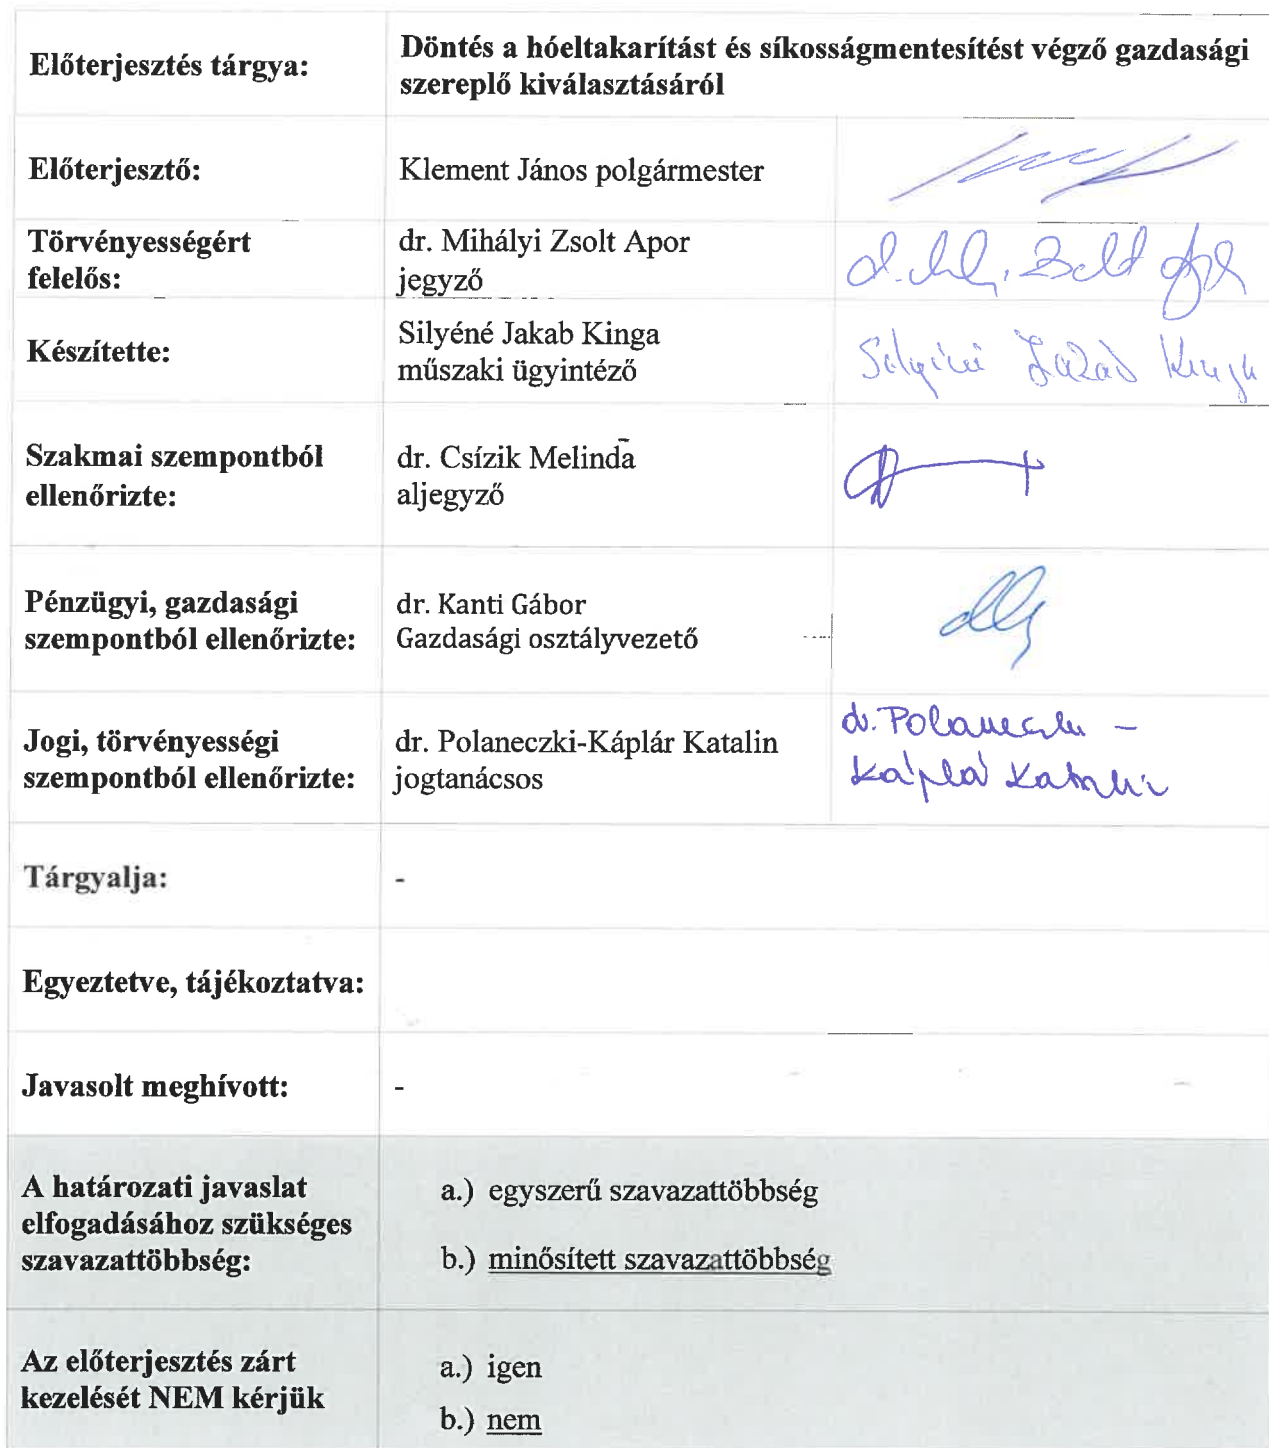 Előterjesztés tárgya:
Döntés a hóeltakarítást és síkosságmentesítést végző gazdasági
szereplő kiválasztásáról
Előterjesztő:
Klement János polgármester
Törvényességért
felelős:
dr. Mihályi Zsolt Apor
jegyző
Készítette:
Silyéné Jakab Kinga
műszaki ügyintéző
Silyéné Jakab Kinga
Szakmai szempontból
ellenőrizte:
dr. Csízik Melinda
aljegyző
Pénzügyi, gazdasági
szempontból ellenőrizte:
dr. Kanti Gábor
Gazdasági osztályvezető
Jogi, törvényességi
szempontból ellenőrizte:
dr. Polaneczki-Káplár Katalin
jogtanácsos
dr. Polaneczki -
Káplár Katalin
Tárgyalja:
-
Egyeztetve, tájékoztatva:
Javasolt meghívott:
-
A határozati javaslat
elfogadásához szükséges
szavazattöbbség:
a.) egyszerű szavazattöbbség
b.) minősített szavazattöbbség
Az előterjesztés zárt
kezelését NEM kérjük
a.) igen
b.) nem